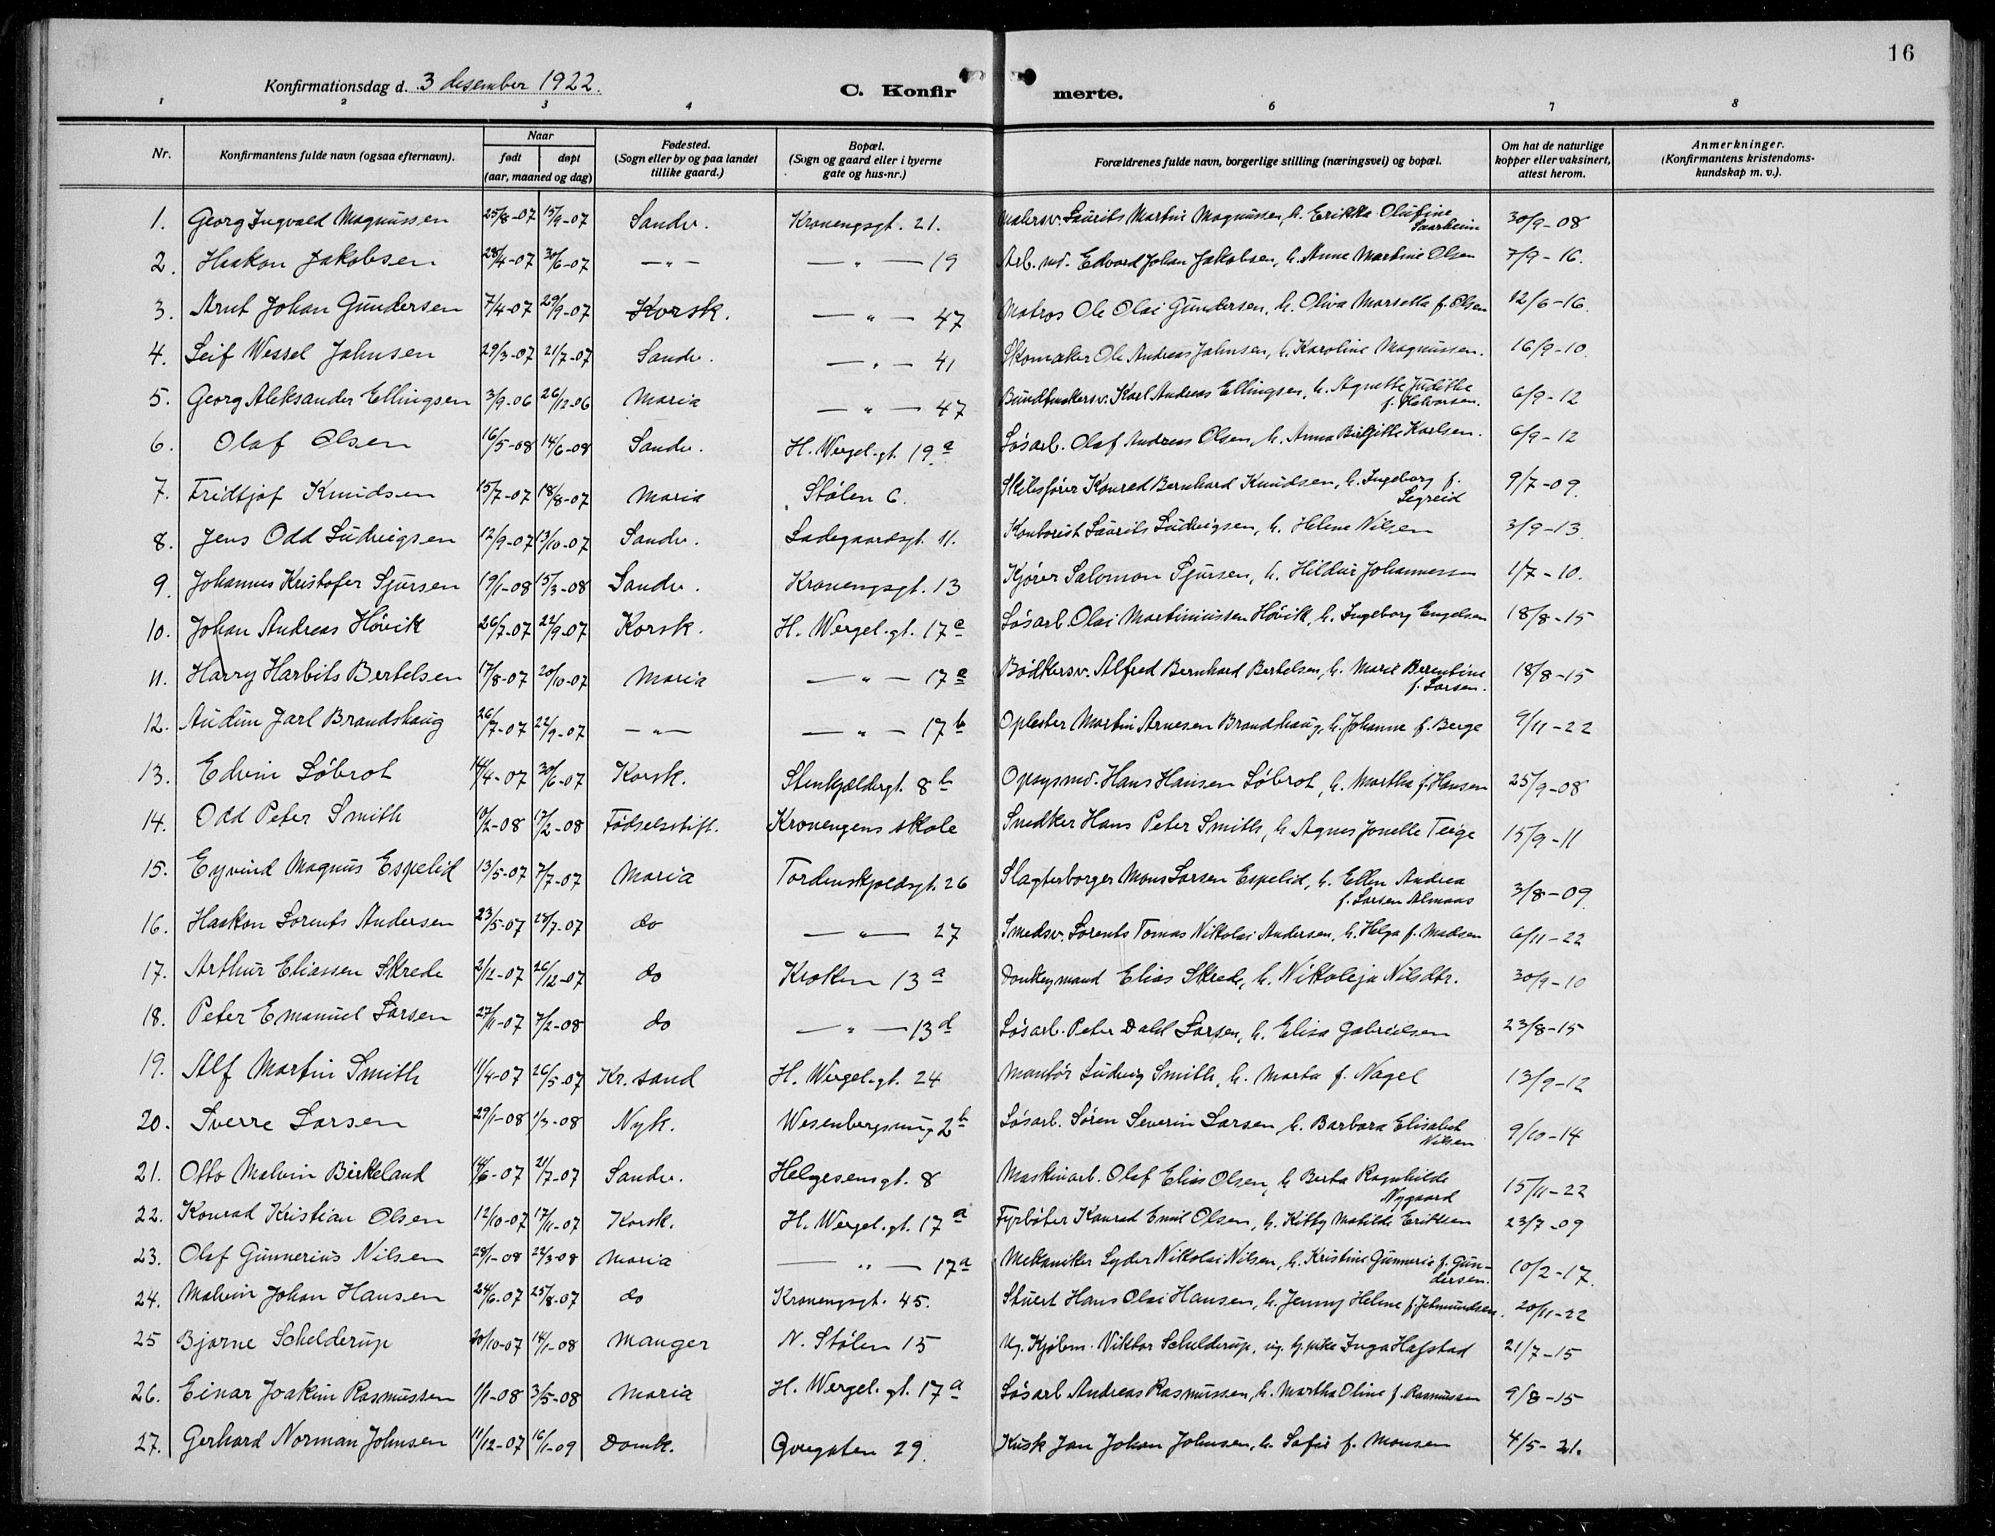 16
Konfirmationsdag d. 3 desember 1922.
C. Konfir merte.
1 2 3 4 6 7 8
Nr. Konfirmantens fulde navn (ogsaa efternavn). Naar født døpt (aar, maaned og dag) Fødested. (Sogn eller by og paa landet tillike gaard.) Bopæl. (Sogn og gaard eller i byerne gate og hus-nr.) Forældrenes fulde navn, borgerlige stilling (næringsvei) og bopæl. Om hat de naturlige kopper eller vaksinert, attest herom. Anmerkninger. (Konfirmantens kristendoms-kundskap m. v.).
1. Georg Ingvald Magnussen 25/8-07 15/9-07 Sandv. Kronengsgt. 21. Malersv. Laurits Martin Magnussen, h. Erikka Olufine Saarheim 30/9-08
2. Haakon Jakobsen 28/4-07 30/6-07 —"— —"— 19 Arb.md. Edvard Johan Jakobsen, h. Anne Martine Olsen 7/9-16.
3. Arnt Johan Gundersen 7/4-07 29/9-07 Korsk. —"— 47 Matros Ole Olai Gundersen, h. Oliva Marsella f. Olsen 12/6-16.
4. Leif Wessel Johnsen 29/3-07 21/7-07 Sandv. —"— 41 Skomaker Ole Andreas Johnsen, h. Karoline Magnussen. 16/9-10.
5. Georg Aleksander Ellingsen 3/9-06 26/12-06 Maria —"— 47 Bundtmakersv. Karl Andreas Ellingsen, h. Agnette Juditte f. Halvorsen. 6/9-12
6. Olaf Olsen 16/5-08 14/6-08 Sandv. H. Wergel.gt. 19a Løsarb. Olaf Andreas Olsen, h. Anna Birgitte Karlsen. 6/9-12
7. Fridtjof Knudsen 15/7-07 18/8-07 Maria Stølen 6. Konrad Bernhard Knudsen, h. Ingeborg f. Segreid 9/7-09.
8. Jens Odd Ludvigsen 12/9-07 13/10-07 Sandv. Ladegaardsgt. 11. Kontorist Laurits Ludvigsen, h. Helene Nilsen 3/9-13.
9. Johannes Kristofer Sjursen 19/1-08 15/3-08 Sandv. Kronengsgt. 13 Kjører Salomon Sjursen, h. Hildur Johannessen 1/7-10.
10. Johan Andreas Høvik 26/7-07 22/9-07 Korsk. H. Wergel.gt. 17c Løsarb. Olai Martinussen Høvik, h. Ingeborg Engelsen 18/8-15
11. Harry Harbits Bertelsen 17/8-07 20/10-07 Maria —"— 17a Bødkersv. Alfred Bernhard Bertelsen, h. Marie Berentine f. Larsen. 18/8-15
12. Audun Jarl Brandshaug 26/7-07 22/9-07 —"— —"— 17b Oplester Martin Arnesen Brandhaug, h. Johanne f. Berge 9/11-22
13. Edvin Løbrot 14/4-07 30/6-07 Korsk. Stenkjældergt. 8b Opsynsmd. Hans Hansen Løbrot, h. Martha f. Hansen 25/9-08
14. Odd Peter Smith 10/2-08 17/2-08 Fødselsstift. Kronengens skole Snedker Hans Peter Smith, h. Agnes Jonette Teige 15/9-11
15. Eyvind Magnus Espelid 13/5-07 7/7-07 Maria Tordenskjoldsgt. 26 Slagterborger Mons Larsen Espelid, h. Ellen Andrea f. Larsen Almaas 3/8-09.
16. Haakon Lorents Andersen 23/5-07 28/7-07 do —"— 27 Smedsv. Lorents Tomas Nikolai Andersen, h. Helga f. Madsen 6/11-22
17. Arthur Eliassen Skrede 2/11-07 26/12-07 do Kroken 13a Donkeymand Elias Skrede, h. Nikoleja Nilsdtr. 30/9-10
18. Peter Emanuel Larsen 27/11-07 7/2-08 do —"— 13d Løsarb. Peter Dald Larsen, h. Elisa Gabrielsen 23/8-15
19. Alf Martin Smith 11/4-07 26/5-07 Kr.sand H. Wergel.gt. 24 Montør Ludvig Smith, h. Marta f. Nagel 13/9-12
20. Sverre Larsen 29/1-08 1/3-08 Nyk. Wesenbergsmug 2b Løsarb. Søren Severin Larsen, h. Barbara Elisabet Nilsen 9/10-14
21. Otto Malvin Birkeland 14/6-07 21/7-07 Sandv. Helgesensgt. 8 Maskinarb. Olaf Elias Olsen, h. Berta Ragnhilde Nygaard 15/11-22
22. Konrad Kristian Olsen 12/10-07 17/11-07 Korsk. H. Wergel.gt. 17a Fyrbøter Konrad Emil Olsen, h. Kitty Matilde Eriksen 23/7-09
23. Olaf Gunnerius Nilsen 28/1-08 22/3-08 Maria —"— 17a Mekaniker Lyder Nikolai Nilsen, h. Kristine Gunnerie f. Gundersen. 10/2-17.
24. Malvin Johan Hansen 24/6-07 25/8-07 do Kronengsgt. 45. Stuert Hans Olai Hansen, h. Jenny Helene f. Jetmundsen. 20/11-22
25 Bjarne Schelderup 20/10-07 14/1-08 Manger N. Stølen 15 Ug. Kjøbm. Viktor Schelderup, ug. tj.pike Inga Hafstad 21/7-15
26. Einar Joakim Rasmussen 1/1-08 3/5-08 Maria H. Wergel.gt. 17a Løsarb. Andreas Rasmussen, h. Martha Oline f. Rasmussen 9/8-15
27. Gerhard Norman Johnsen 11/12-07 16/1-09 Domk. Qvegaten 29. Kusk Jan Johan Johnsen, h. Sofie f. Monsen 4/5-21.